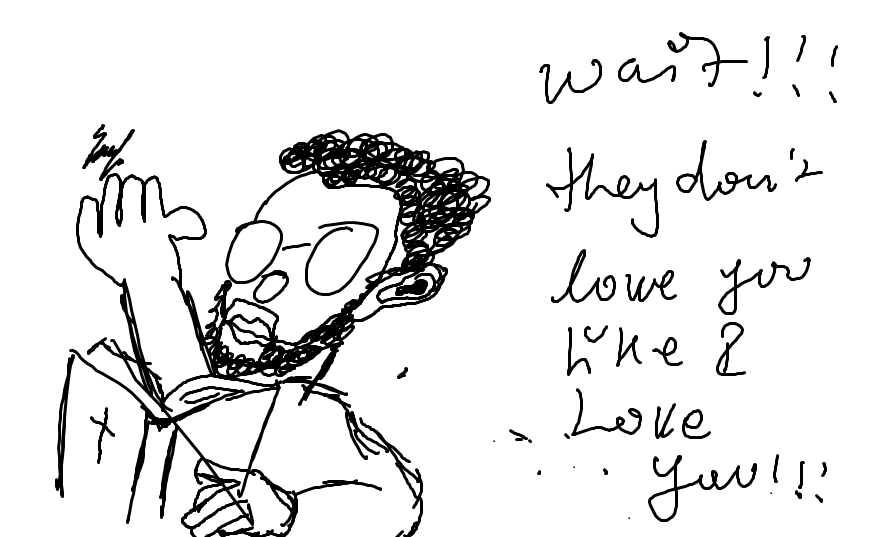 wait!!!
they don't
love you
like I
Love
you!!!